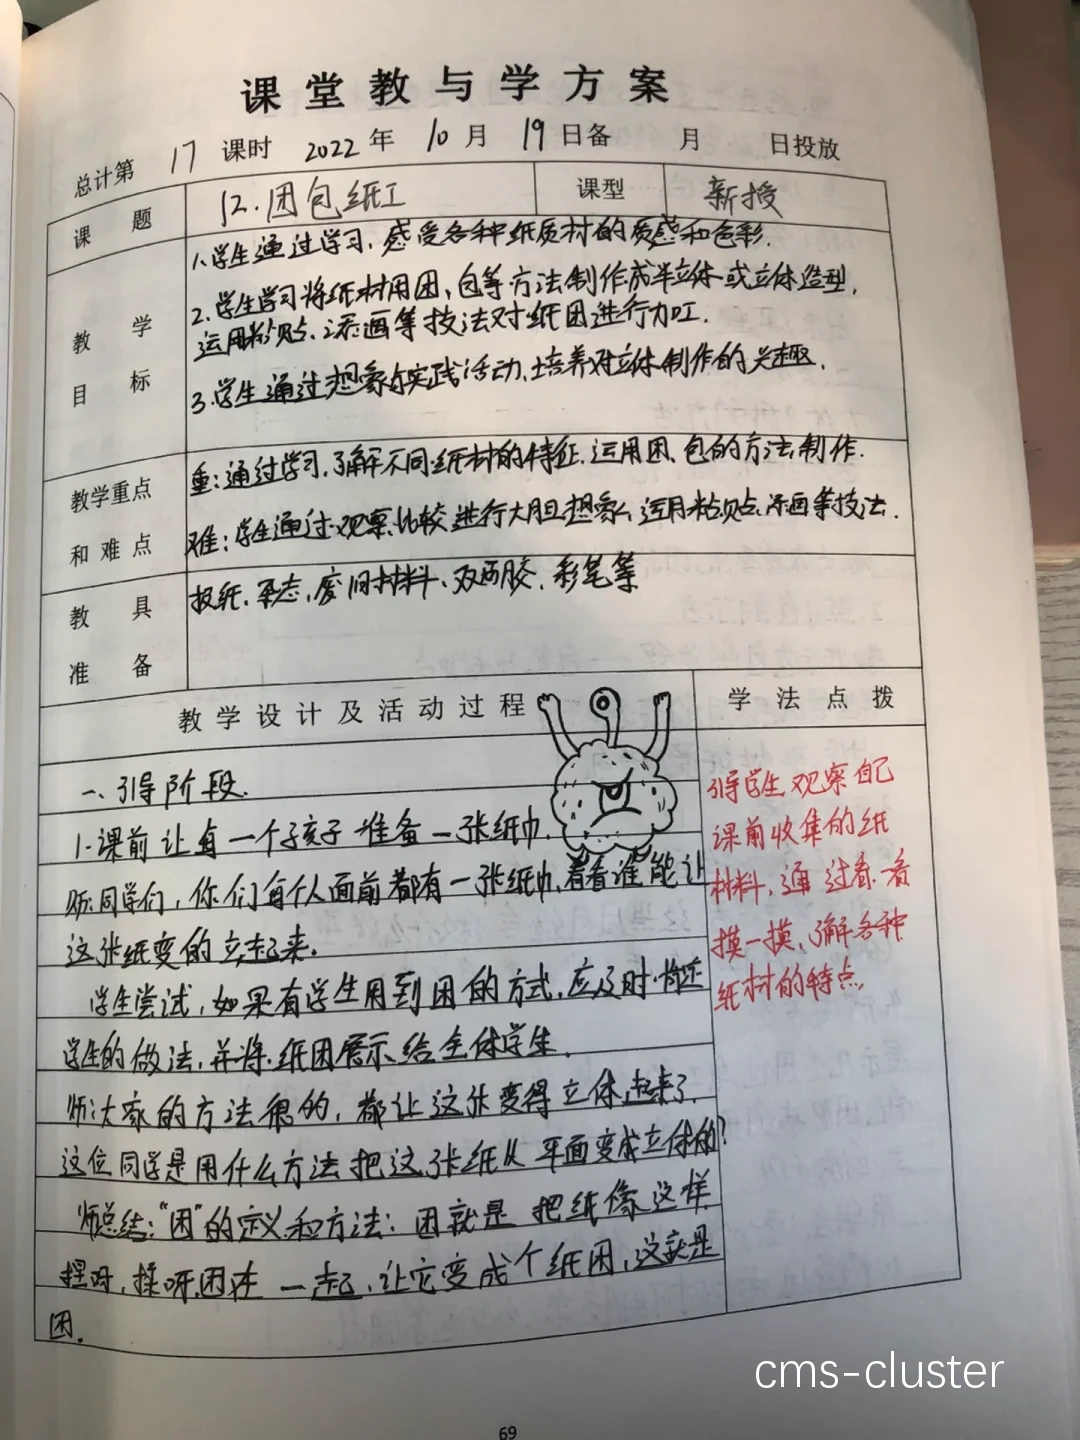 课堂教与学方案
总计第 17 课时 2022年 10月 19日备 月 日投放
课题 12.团包纸工 课型 新授
教学目标
1.学生通过学习,感受各种纸质材的质感和色彩.
2.学生学习将纸材用团、包等方法制作成半立体或立体造型,
运用粘贴、添画等技法对纸团进行加工.
3.学生通过想象与实践活动,培养对立体制作的兴趣.
教学重点和难点
重:通过学习,了解不同纸材的特征.运用团、包的方法制作.
难:学生通过观察、比较进行大胆想象,运用粘贴、添画等技法.
教具准备
报纸、废旧材料、双面胶、彩笔等
教学设计及活动过程 学法点拨
一、引导阶段.
1.课前让每一个孩子准备一张纸巾.
师:同学们,你们每个人面前都有一张纸巾,看看谁能让
这张纸变的立起来.
学生尝试,如果有学生用到团的方式,应及时
学生的做法,并将纸团展示给全体学生.
师:大家的方法很的,都让这张变得立体起来了.
这位同学是用什么方法把这张纸从平面变成立体的?
师总结:"团"的定义和方法:团就是把纸像这样
捏呀,揉呀,团在一起,让它变成个纸团,这就是
团.
引导学生观察自己
课前收集的纸
材料,通过看一看
摸一摸,了解各种
纸材的特点
69
cms-cluster